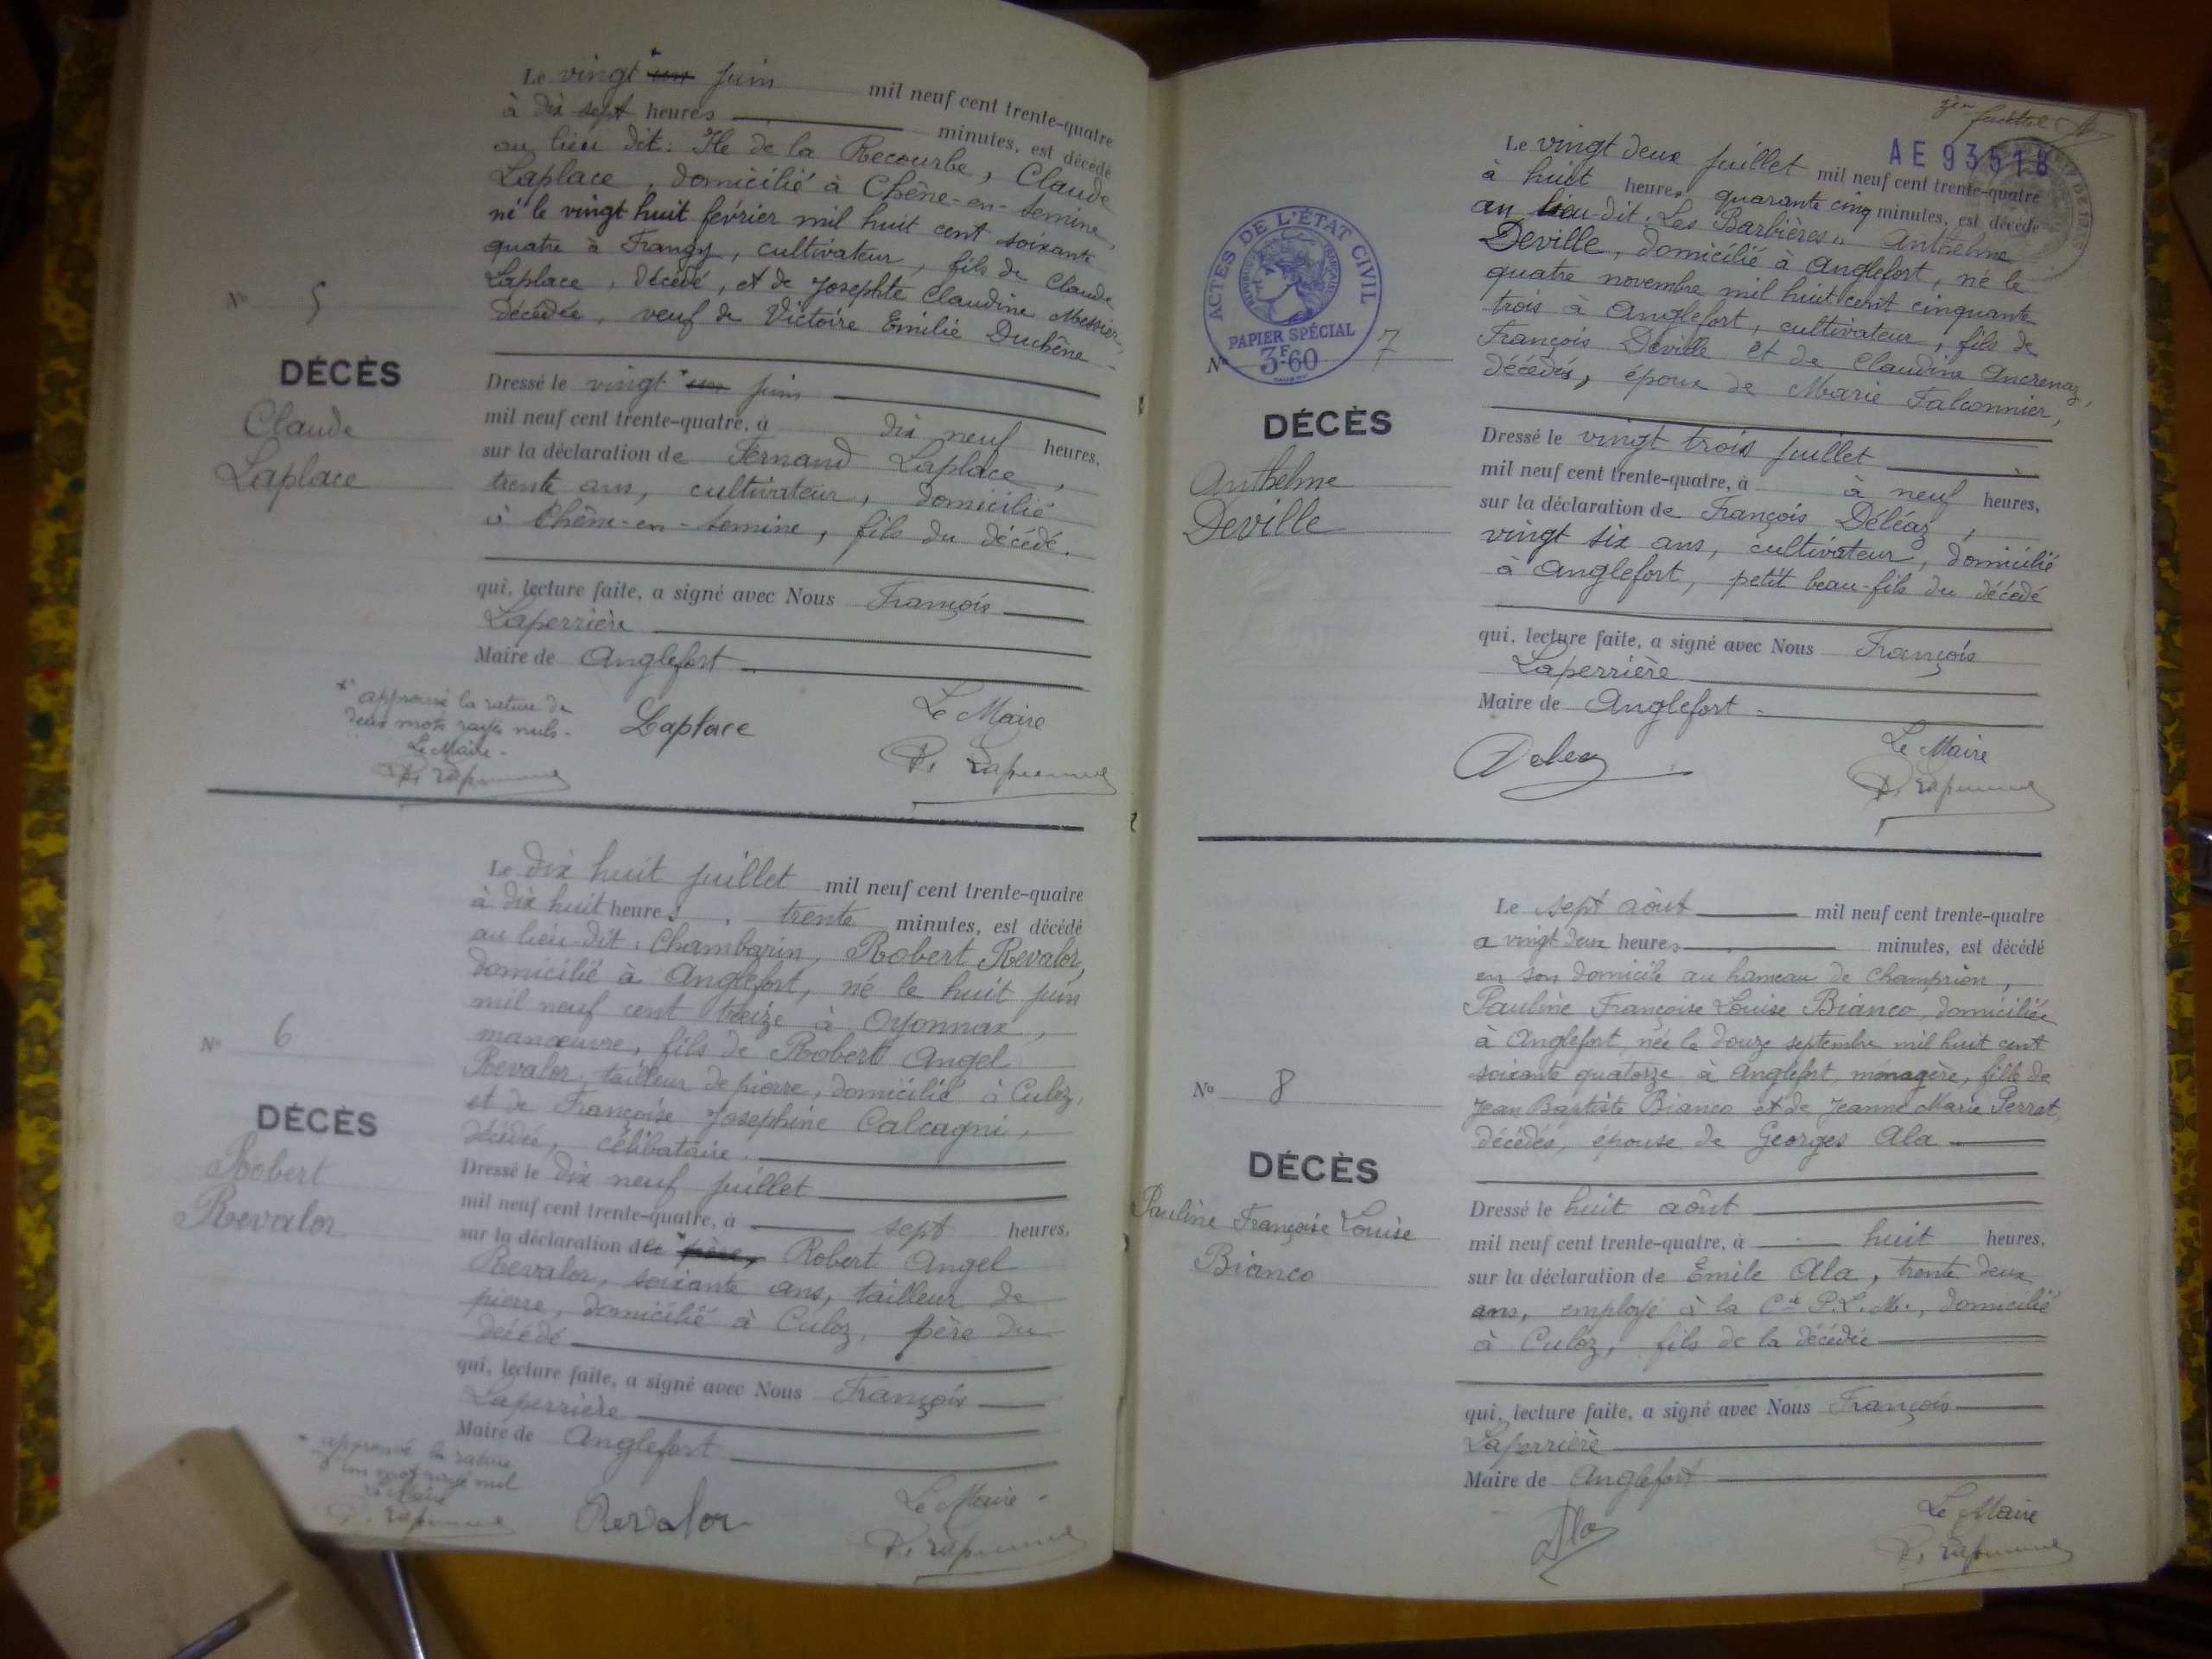 Le vingt un juin mil neuf cent trente-quatre
à dix sept heures minutes, est décédé
au lieu dit : Ile de la Recourbe, Claude
Laplace, domicilié à Chêne-en-Semine,
né le vingt huit février mil huit cent soixante
quatre à Frangy, cultivateur, fils de Claude
Laplace, décédé, et de Josephte Claudine Messier,
décédée, veuf de Victoire Emilie Duchêne
N° 5
DÉCÈS
Claude
Laplace
Dressé le vingt un juin
mil neuf cent trente-quatre, à dix neuf heures,
sur la déclaration de Fernand Laplace,
trente ans, cultivateur, domicilié
à Chêne-en-Semine, fils du décédé.
qui, lecture faite, a signé avec Nous François
Laperrière
Maire de Anglefort
* approuvé la rature de
deux mots rayés nuls.
Le Maire
Laplace
Le Maire
Le dix huit juillet mil neuf cent trente-quatre
à dix huit heures trente minutes, est décédé
au lieu-dit : Chambarin, Robert Revalor,
domicilié à Anglefort, né le huit juin
mil neuf cent treize à Oyonnax,
manœuvre, fils de Robert Angel
Revalor, tailleur de pierre, domicilié à Culoz,
et de Françoise Josephine Calcagni,
décédée, célibataire.
N° 6
DÉCÈS
Robert
Revalor
Dressé le dix neuf juillet
mil neuf cent trente-quatre, à sept heures,
sur la déclaration de père, Robert Angel
Revalor, soixante ans, tailleur de
pierre, domicilié à Culoz, père du
décédé
qui, lecture faite, a signé avec Nous François
Laperrière
Maire de Anglefort
* approuvé la rature
un mot rayé nul
Le Maire
Revalor
Le Maire
AE 93518
Le vingt deux juillet mil neuf cent trente-quatre
à huit heures quarante cinq minutes, est décédé
au lieu-dit "Les Barbières" Anthelme
Deville, domicilié à Anglefort, né le
quatre novembre mil huit cent cinquante
trois à Anglefort, cultivateur, fils de
François Deville et de Claudine Ancrenaz,
décédés, époux de Marie Falconnier,
ACTES DE L'ÉTAT CIVIL
RÉPUBLIQUE FRANÇAISE
PAPIER SPÉCIAL
3F.60
N° 7
DÉCÈS
Anthelme
Deville
Dressé le vingt trois juillet
mil neuf cent trente-quatre, à à neuf heures,
sur la déclaration de François Déléaz,
vingt six ans, cultivateur, domicilié
à Anglefort, petit beau-fils du décédé
qui, lecture faite, a signé avec Nous François
Laperrière
Maire de Anglefort
Le Maire
Le sept août mil neuf cent trente-quatre
a vingt deux heures minutes, est décédé
en son domicile au hameau de Champrion,
Pauline Françoise Louise Bianco, domiciliée
à Anglefort, née le douze septembre mil huit cent
soixante quatorze à Anglefort, ménagère, fille de
Jean Baptiste Bianco et de Jeanne Marie Perret,
décédés, épouse de Georges Ala
N° 8
DÉCÈS
Pauline Françoise Louise
Bianco
Dressé le huit août
mil neuf cent trente-quatre, à huit heures,
sur la déclaration de Emile Ala, trente deux
ans, employé à la Cie P.L.M., domicilié
à Culoz, fils de la décédée
qui, lecture faite, a signé avec Nous François
Laperrière
Maire de Anglefort
Ala
Le Maire